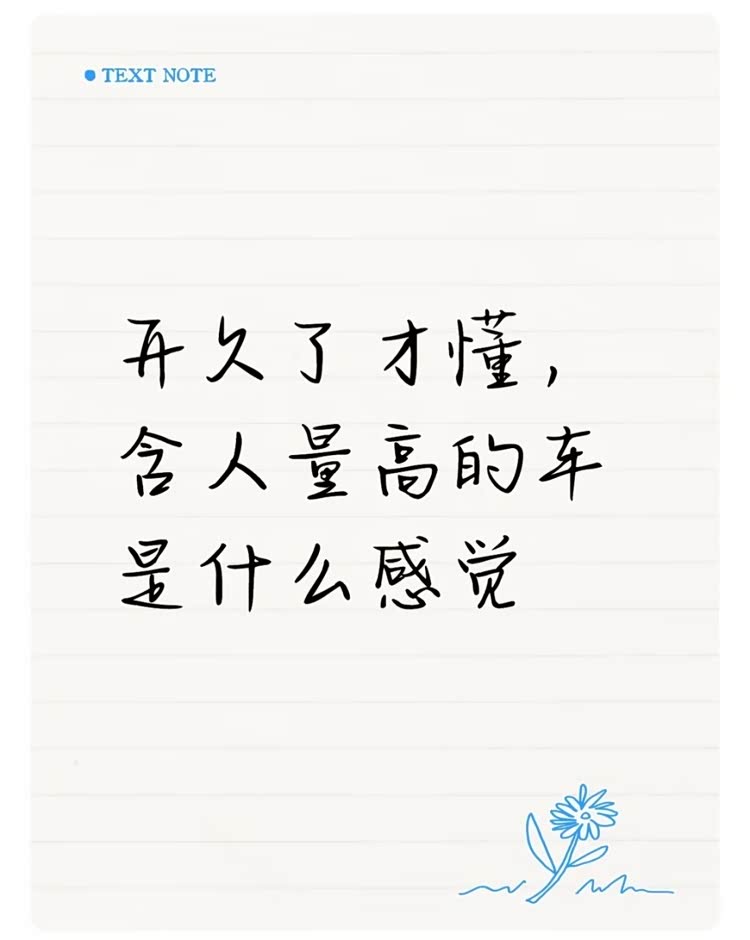 TEXT NOTE
开久了才懂，
含人量高的车
是什么感觉